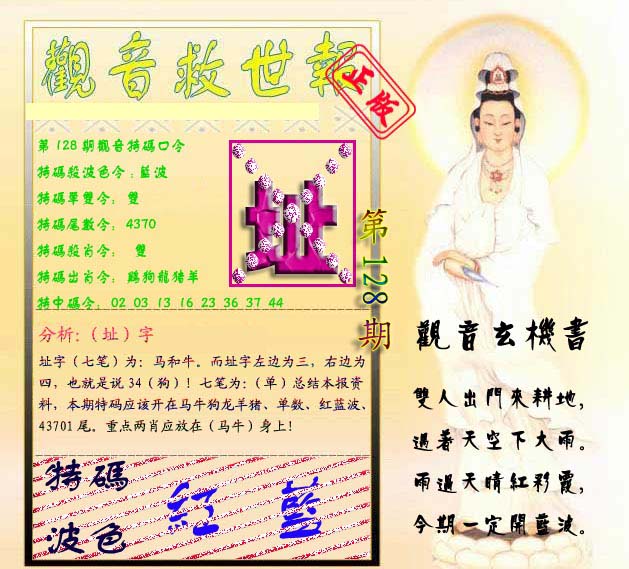 觀音救世報
正版
第128期觀音特碼口令
特碼殺波色令：藍波
特碼單雙令： 雙
特碼尾數令： 4370
特碼殺肖令： 雙
特碼出肖令： 鷄狗龍猪羊
特中碼令： 02 03 13 16 23 36 37 44
址
第128期
分析：（址）字
址字（七笔）为：马和牛。而址字左边为三，右边为
四，也就是说 34（狗）！七笔为：（单）总结本报资
料，本期特码应该开在马牛狗龙羊猪、单数、红蓝波、
43701 尾。重点两肖应放在（马牛）身上！
特碼
波色
紅 藍
觀音玄機書
雙人出門來耕地，
遇著天空下大雨。
雨過天晴紅彩霞，
今期一定開藍波。